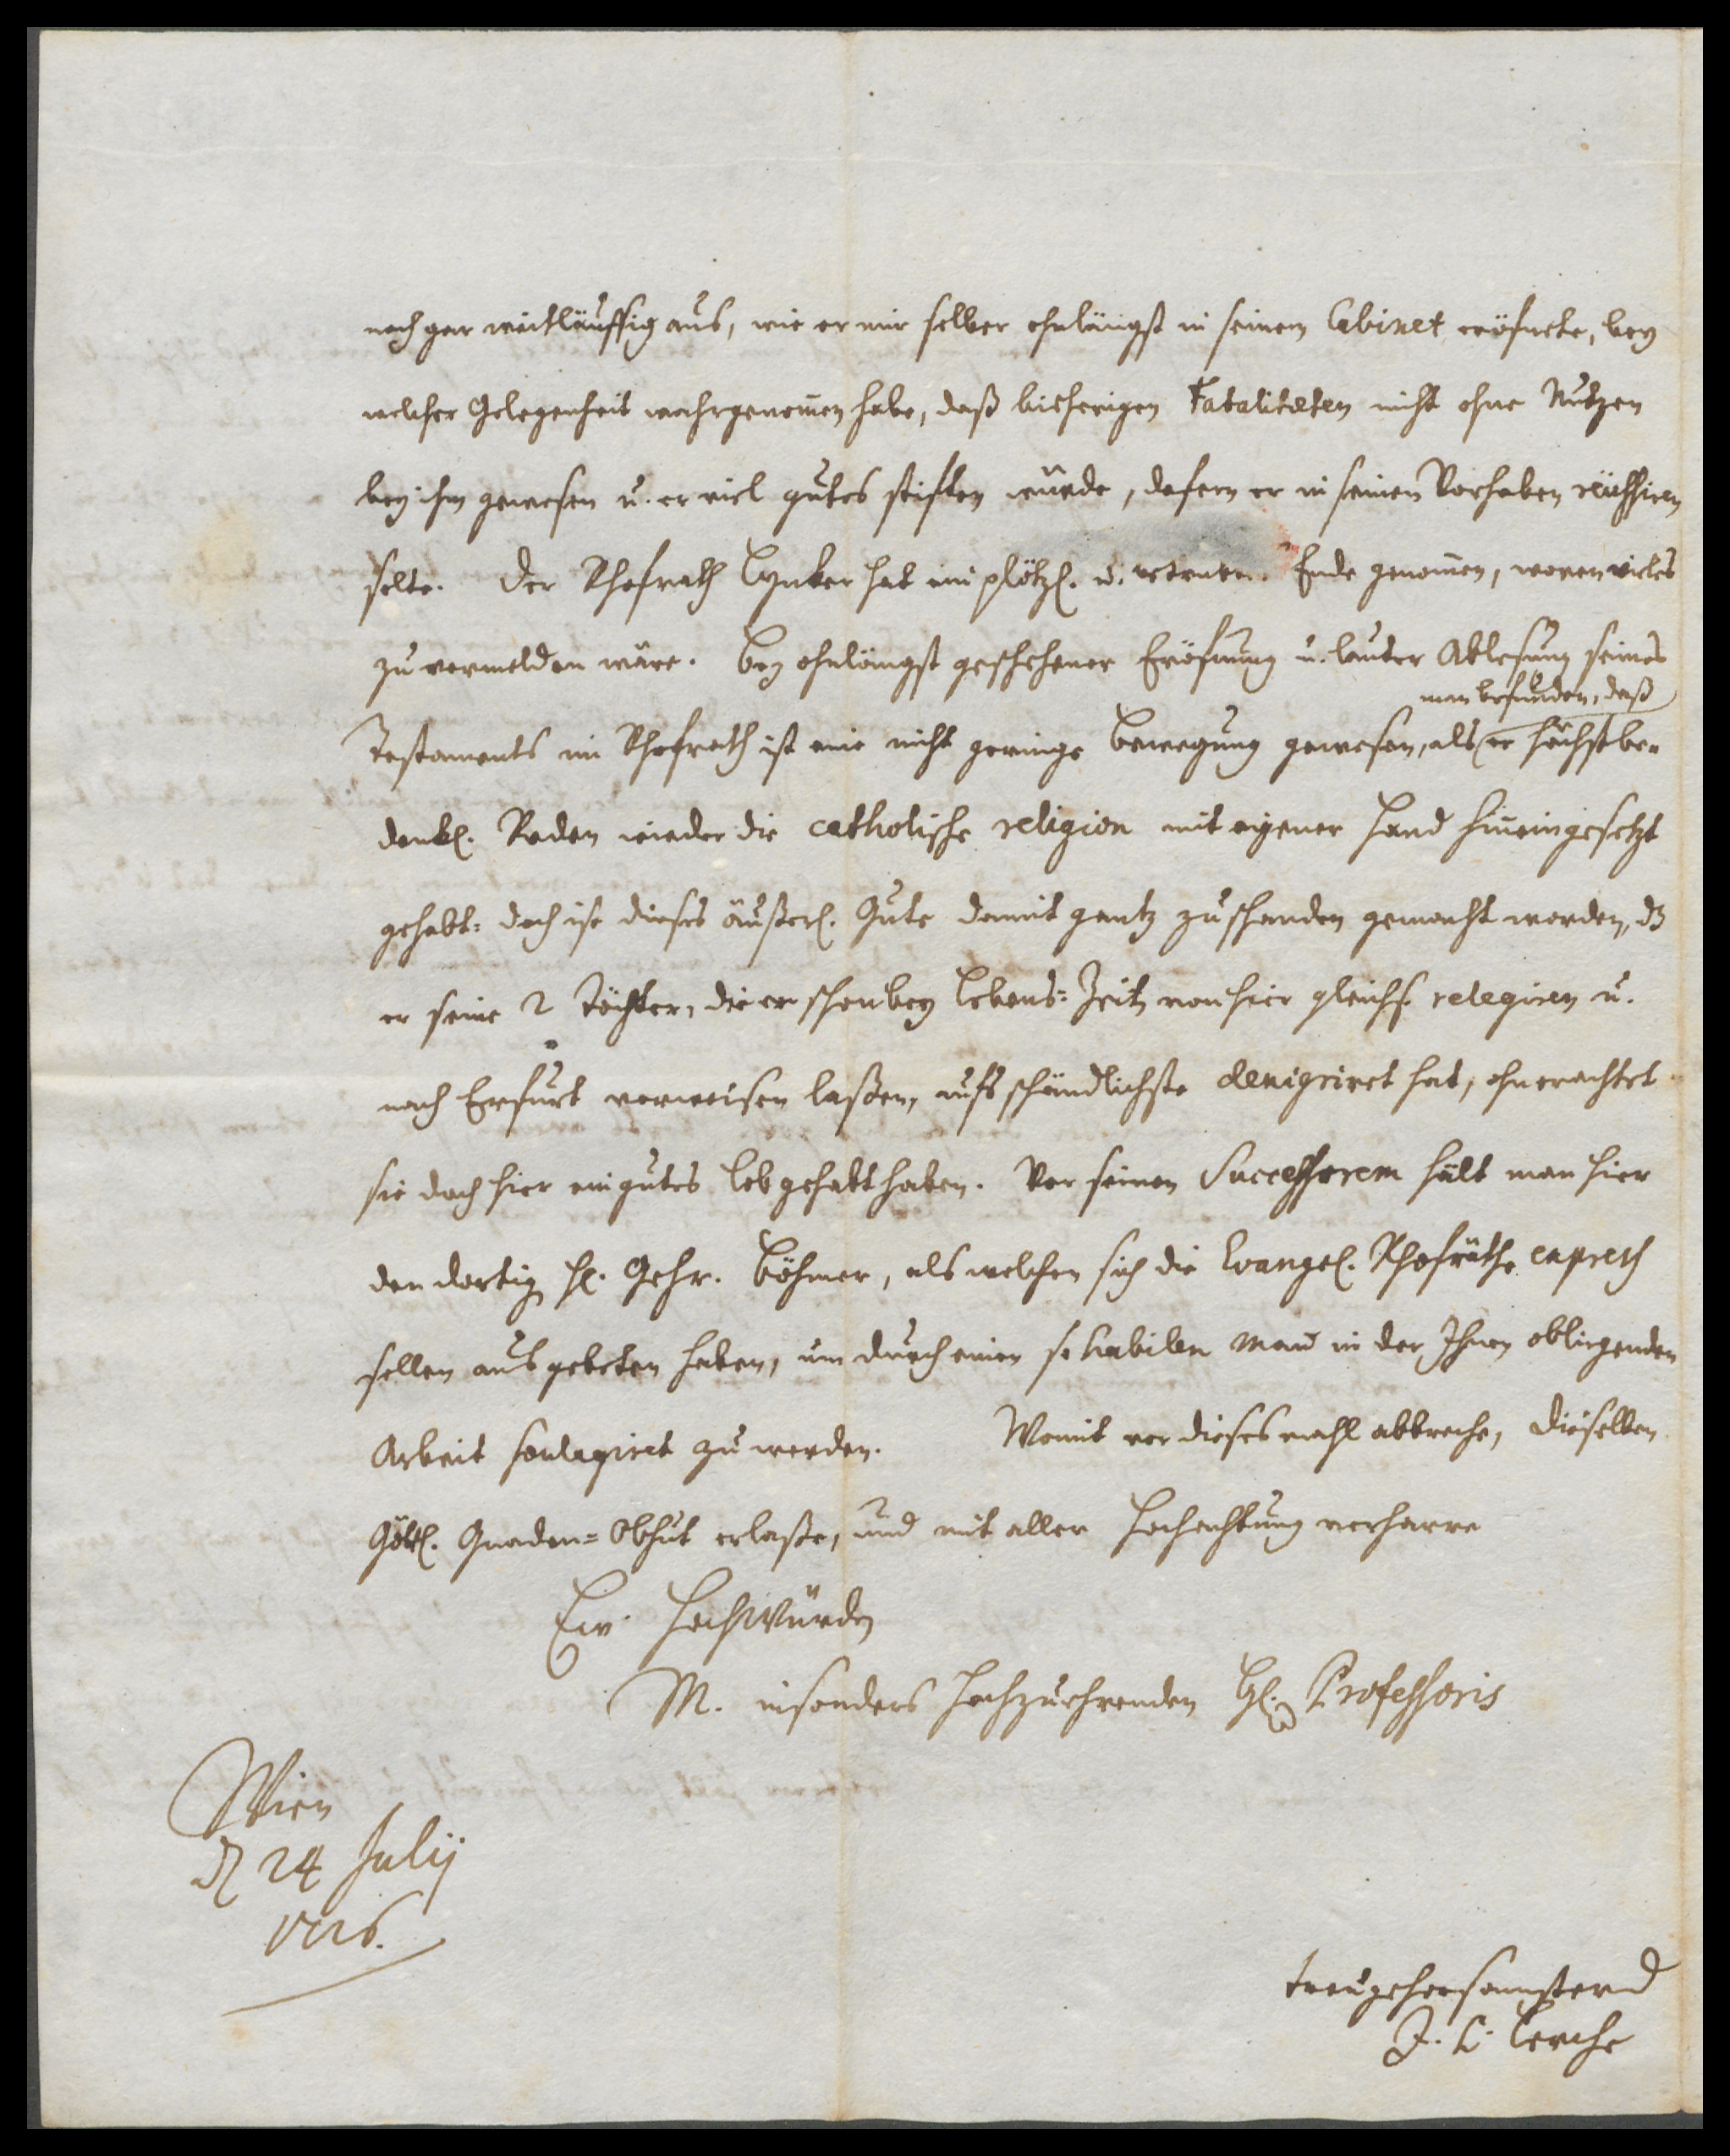 noch gar weitläuffig aus, wie er mir selber ohnlängst in seinem Cabinet eröfnete, bey
welcher Gelegenheit wahrgenom̄en habe, daß bisherigen Fatalitæten nicht ohne Nutzen
bey ihm gewesen u. er viel gutes stiften würde, dafern er in seinen Vorhaben reüssiren
solte. Der Rhofrath Lynker hat ein plötzl. u. Ende genom̄en, wovon vieles
zu vermelden wäre. Bey ohnlängst geschehener Eröfnung u. lauter Ablesung seines
man befunden, daß
Testaments im Rhofrath ist eine nicht geringe Bewegung gewesen, als er höchstbe-
denkl. Reden wieder die catholische religion mit eigener Hand hineingesetzt
gehabt: doch ist dieses äußerl. Gute damit gantz zu schanden gemacht worden, dz
er seine 2 Töchter, die er schon bey Lebens-Zeit von hier gleichs. relegiren u.
nach Erfurt verweisen laßen, aufs schändlichste denigriret hat, ohnerachtet
sie doch hier ein gutes Lob gehabt haben. Vor seinen Successorem hält man hier
den dortig H. Gehr. Böhmer, als welchen sich die Evangel. Rhofräthe expreß
sollen ausgebeten haben, um durch einen so habilen Man̄ in der Ihnen obliegenden
Arbeit soulagiret zu werden. Womit vor dieses mahl abbreche, dieselben
Göttl. Gnaden-Obhut erlaße, und mit aller Hochachtung verharre
Ew. Hochwürden
M. insonders Hochzuehrenden H. Professoris
Wien
d 24 Julij
1726.
treugehorsamster D
J. C. Lerche